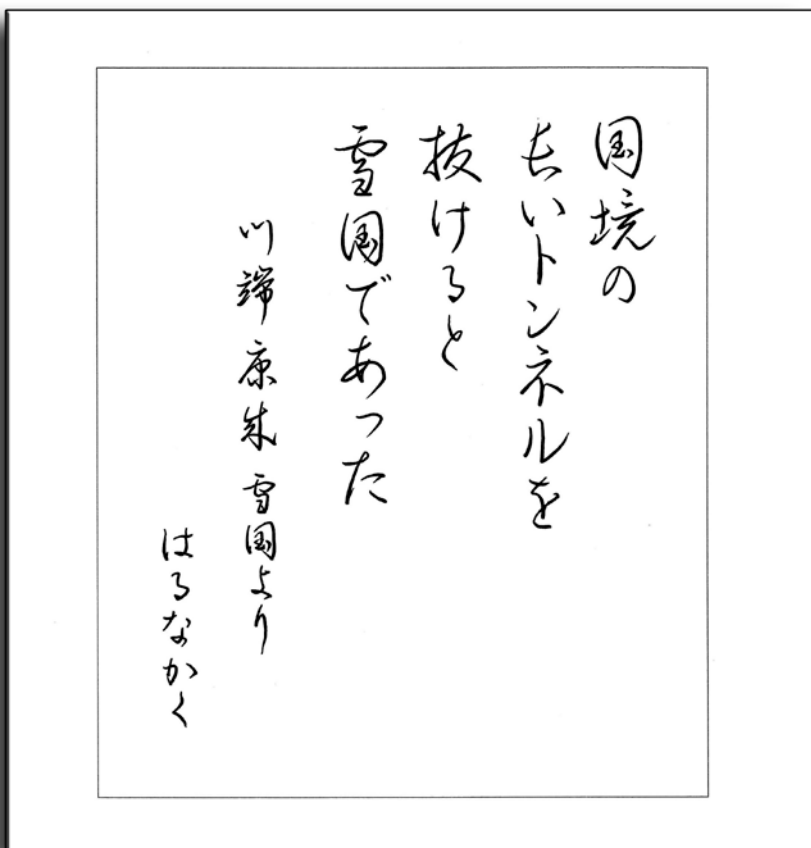 国境の
長いトンネルを
抜けると
雪国であった
川端康成 雪国より
はるなかく